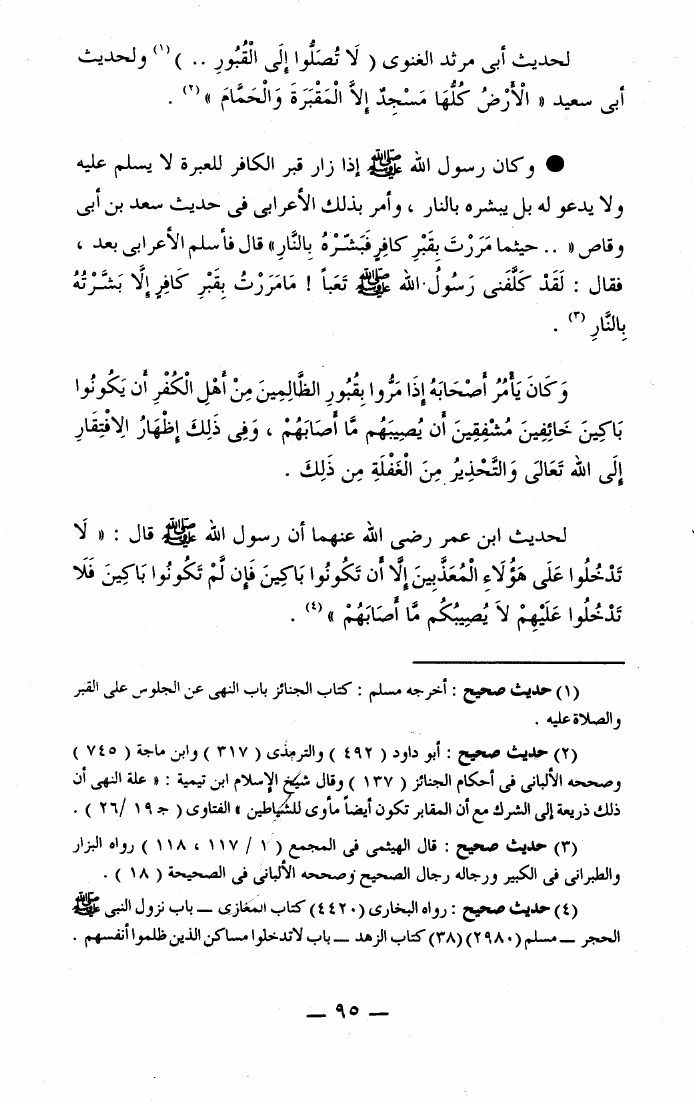 لحديث أبى مرثد الغنوى ( لَا تُصَلُّوا إِلَى الْقُبُورِ .. ) (١) ولحديث
أبى سعيد « الْأَرْضُ كُلُّهَا مَسْجِدٌ إِلاَّ الْمَقْبَرَةَ وَالْحَمَّامَ » (٢) .
● وكان رسول الله ﷺ إذا زار قبر الكافر للعبرة لا يسلم عليه
ولا يدعو له بل يبشره بالنار ، وأمر بذلك الأعرابى فى حديث سعد بن أبى
وقاص « .. حيثما مَرَرْتَ بِقَبْرِ كافِرٍ فَبَشِّرْهُ بِالنَّارِ» قال فأسلم الأعرابى بعد ،
فقال : لَقَدْ كَلَّفَنى رَسُولُ الله ﷺ تَعَباً ! مَامَرَرْتُ بِقَبْرِ كَافِرٍ إِلَّا بَشَّرْتُهُ
بِالنَّارِ (٣) .
وَكَانَ يَأْمُرُ أَصْحَابَهُ إِذَا مَرُّوا بِقُبُورِ الظَّالِمِينَ مِنْ أَهْلِ الْكُفْرِ أَن يَكُونُوا
بَاكِينَ خَائِفِينَ مُشْفِقِينَ أَن يُصِيبَهُم مَّا أَصَابَهُمْ ، وَفِى ذَلِكَ إِظْهَارُ الِافْتِقَارِ
إِلَى الله تَعَالَى وَالتَّحْذِيرُ مِنَ الْغَفْلَةِ مِن ذَلِكَ .
لحديث ابن عمر رضى الله عنهما أن رسول الله ﷺ قال : « لَا
تَدْخُلُوا عَلَى هَؤُلَاءِ الْمُعَذَّبِينَ إِلَّا أَن تَكُونُوا بَاكِينَ فَإِن لَّمْ تَكُونُوا بَاكِينَ فَلَا
تَدْخُلُوا عَلَيْهِمْ لاَ يُصِيبُكُم مَّا أَصَابَهُمْ » (٤) .
(١) حديث صحيح : أخرجه مسلم : كتاب الجنائز باب النهى عن الجلوس على القبر
والصلاة عليه .
(٢) حديث صحيح : أبو داود ( ٤٩٢ ) والترمذى ( ٣١٧ ) وابن ماجة ( ٧٤٥ )
وصححه الألبانى فى أحكام الجنائز ( ١٣٧ ) وقال شيخ الإسلام ابن تيمية : « علة النهى أن
ذلك ذريعة إلى الشرك مع أن المقابر تكون أيضاً مأوى للشياطين » الفتاوى ( جـ ١٩ /٢٦ ) .
(٣) حديث صحيح : قال الهيثمى فى المجمع ( ١ / ١١٧ ، ١١٨ ) رواه البزار
والطبرانى فى الكبير ورجاله رجال الصحيح وصححه الألبانى فى الصحيحة ( ١٨ ) .
(٤) حديث صحيح : رواه البخارى (٤٤٢٠) كتاب المغازى ــ باب نزول النبى ﷺ
الحجر ــ مسلم (٢٩٨٠) (٣٨) كتاب الزهد ــ باب لاتدخلوا مساكن الذين ظلموا أنفسهم .
ــ ٩٥ ــ